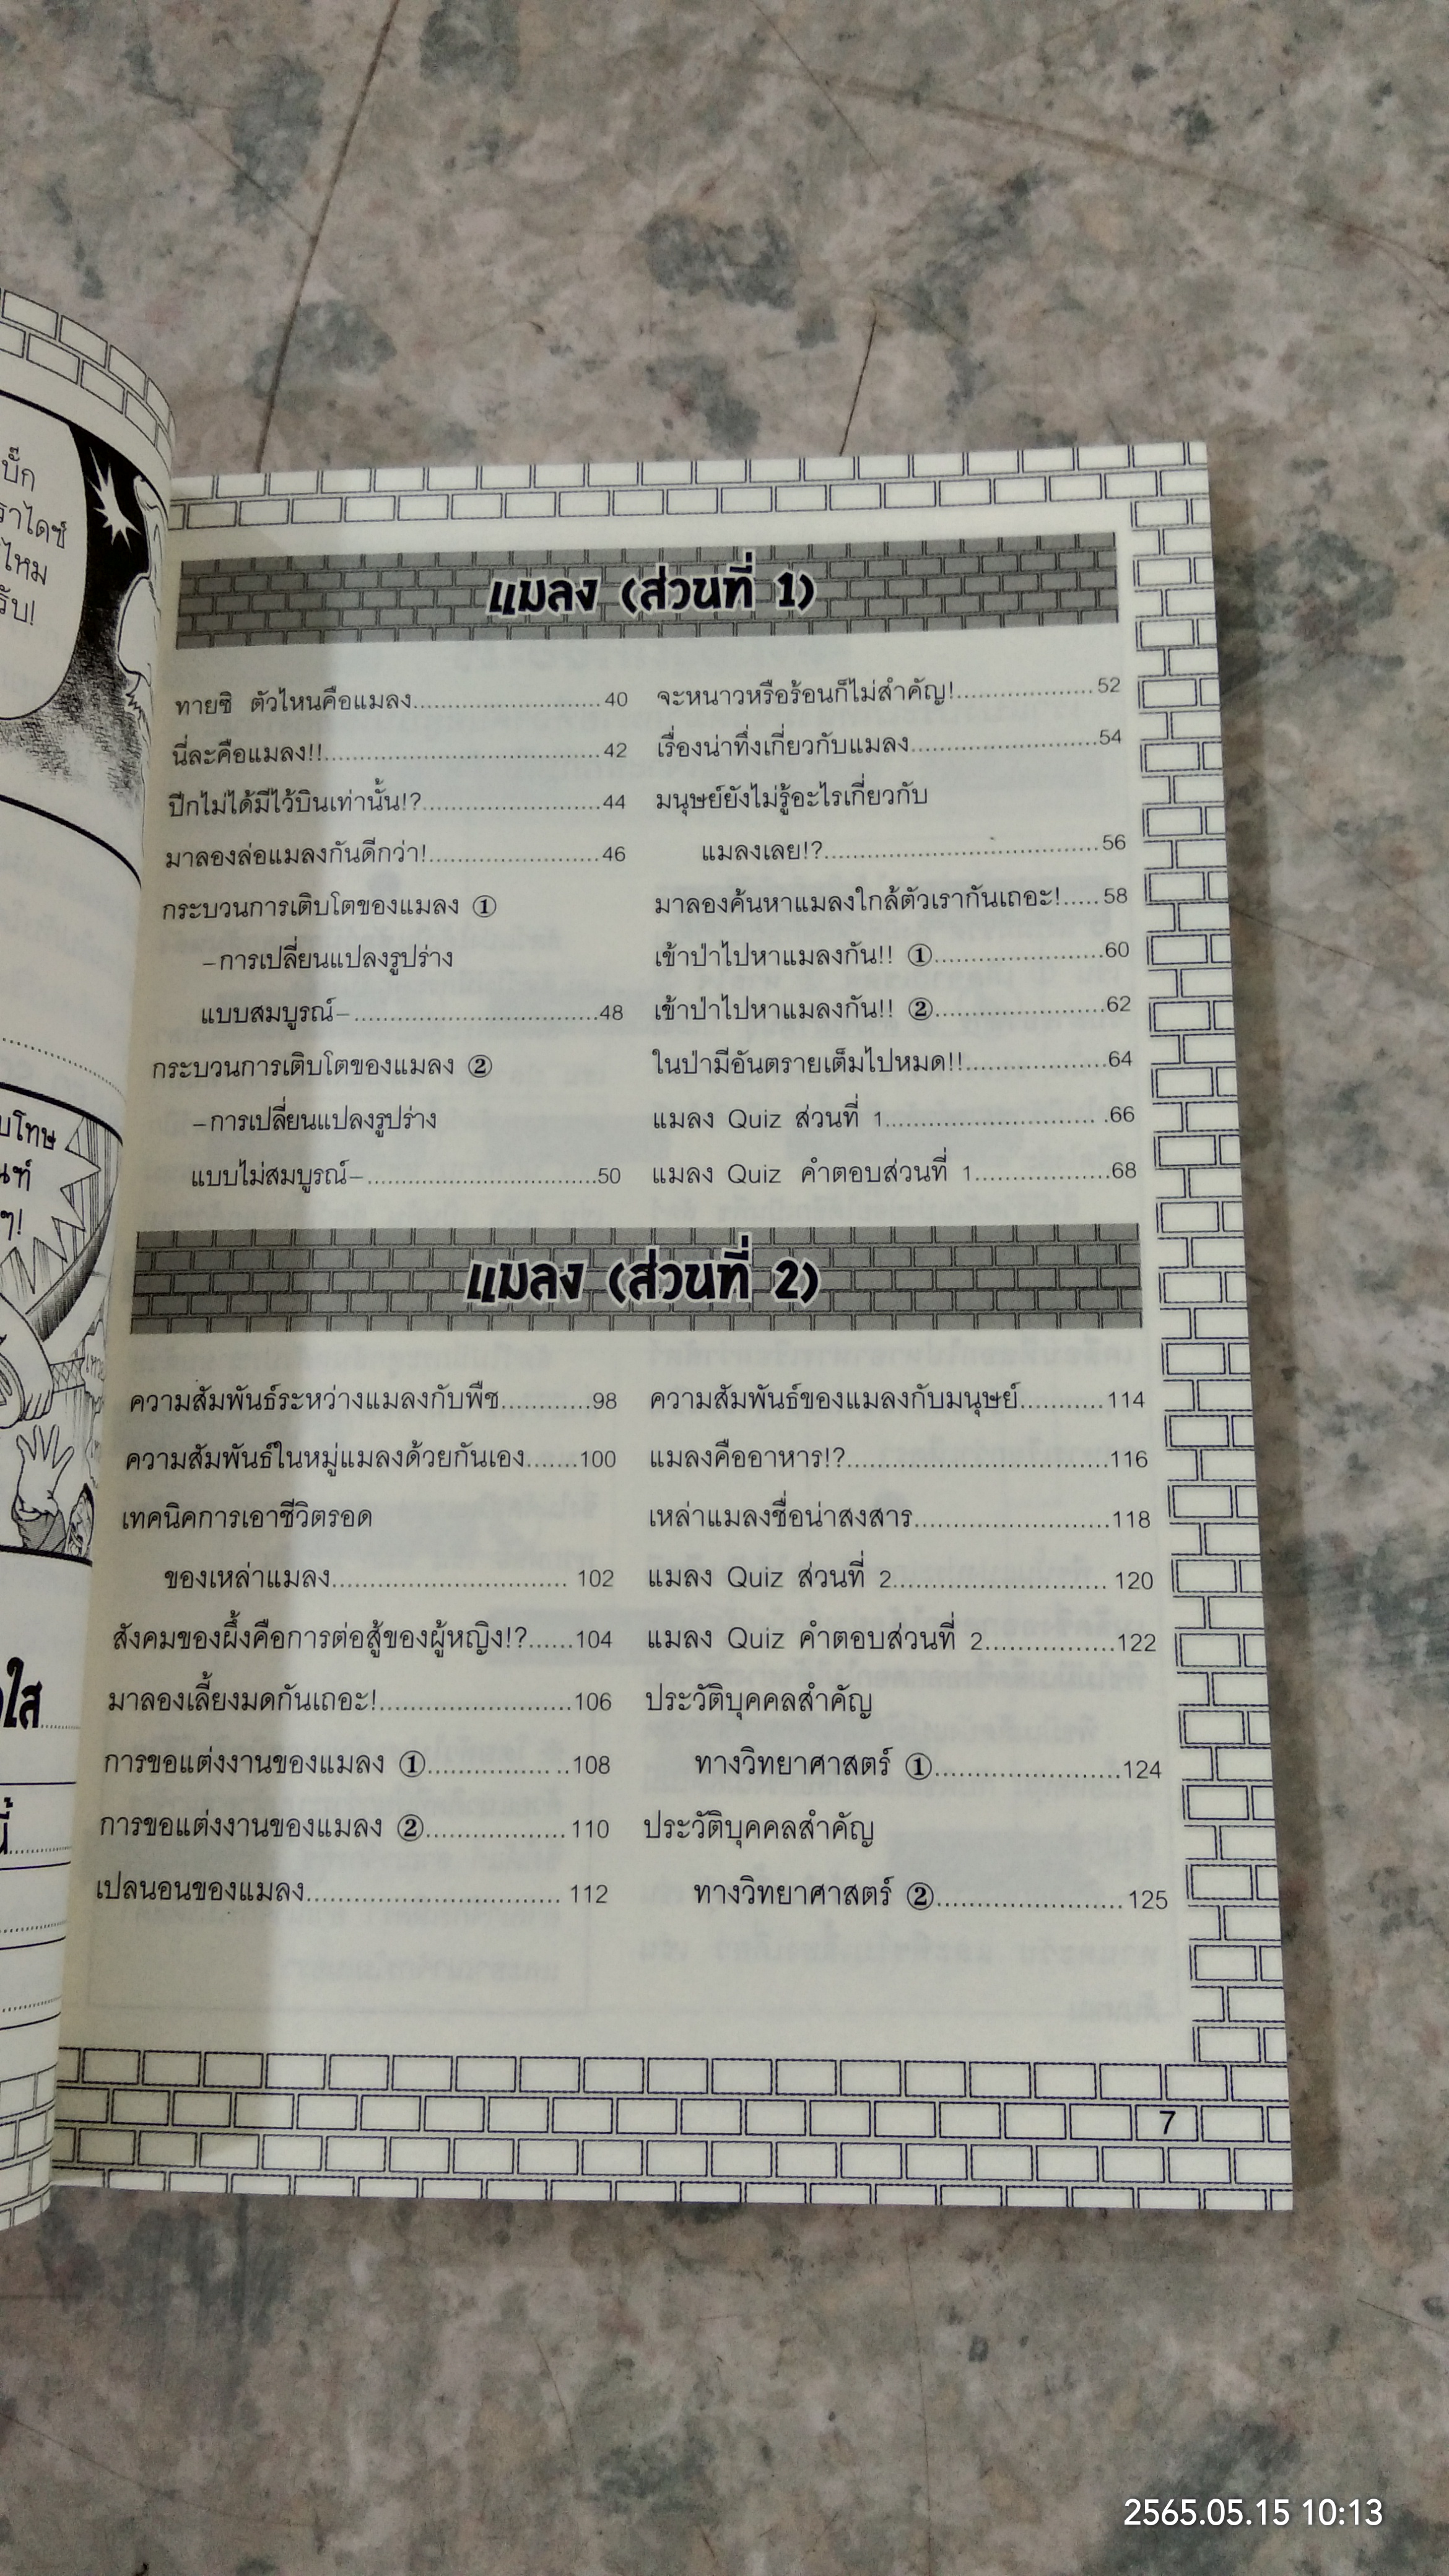 บั๊ก
ราไดซ์
ไหม
รับ!
แมลง (ส่วนที่ 1)
ทายซิ ตัวไหนคือแมลง..........................40
นี่ละคือแมลง!!......................................42
ปีกไม่ได้มีไว้บินเท่านั้น!?.........................44
มาลองล่อแมลงกันดีกว่า!........................46
กระบวนการเติบโตของแมลง ①
–การเปลี่ยนแปลงรูปร่าง
แบบสมบูรณ์–..................................48
กระบวนการเติบโตของแมลง ②
–การเปลี่ยนแปลงรูปร่าง
แบบไม่สมบูรณ์–................................50
จะหนาวหรือร้อนก็ไม่สำคัญ!...................52
เรื่องน่าทึ่งเกี่ยวกับแมลง..........................54
มนุษย์ยังไม่รู้อะไรเกี่ยวกับ
แมลงเลย!?......................................56
มาลองค้นหาแมลงใกล้ตัวเรากันเถอะ!.....58
เข้าป่าไปหาแมลงกัน!! ①.......................60
เข้าป่าไปหาแมลงกัน!! ②.......................62
ในป่ามีอันตรายเต็มไปหมด!!...................64
แมลง Quiz ส่วนที่ 1.............................66
แมลง Quiz คำตอบส่วนที่ 1...................68
บโทษ
ๆ!
แมลง (ส่วนที่ 2)
ความสัมพันธ์ระหว่างแมลงกับพืช............98
ความสัมพันธ์ในหมู่แมลงด้วยกันเอง.......100
เทคนิคการเอาชีวิตรอด
ของเหล่าแมลง................................102
สังคมของผึ้งคือการต่อสู้ของผู้หญิง!?......104
มาลองเลี้ยงมดกันเถอะ!..........................106
การขอแต่งงานของแมลง ①...................108
การขอแต่งงานของแมลง ②...................110
เปลนอนของแมลง...................................112
ความสัมพันธ์ของแมลงกับมนุษย์...........114
แมลงคืออาหาร!?...................................116
เหล่าแมลงชื่อน่าสงสาร..........................118
แมลง Quiz ส่วนที่ 2.............................120
แมลง Quiz คำตอบส่วนที่ 2.................122
ประวัติบุคคลสำคัญ
ทางวิทยาศาสตร์ ①.........................124
ประวัติบุคคลสำคัญ
ทางวิทยาศาสตร์ ②.........................125
7
2565.05.15 10:13